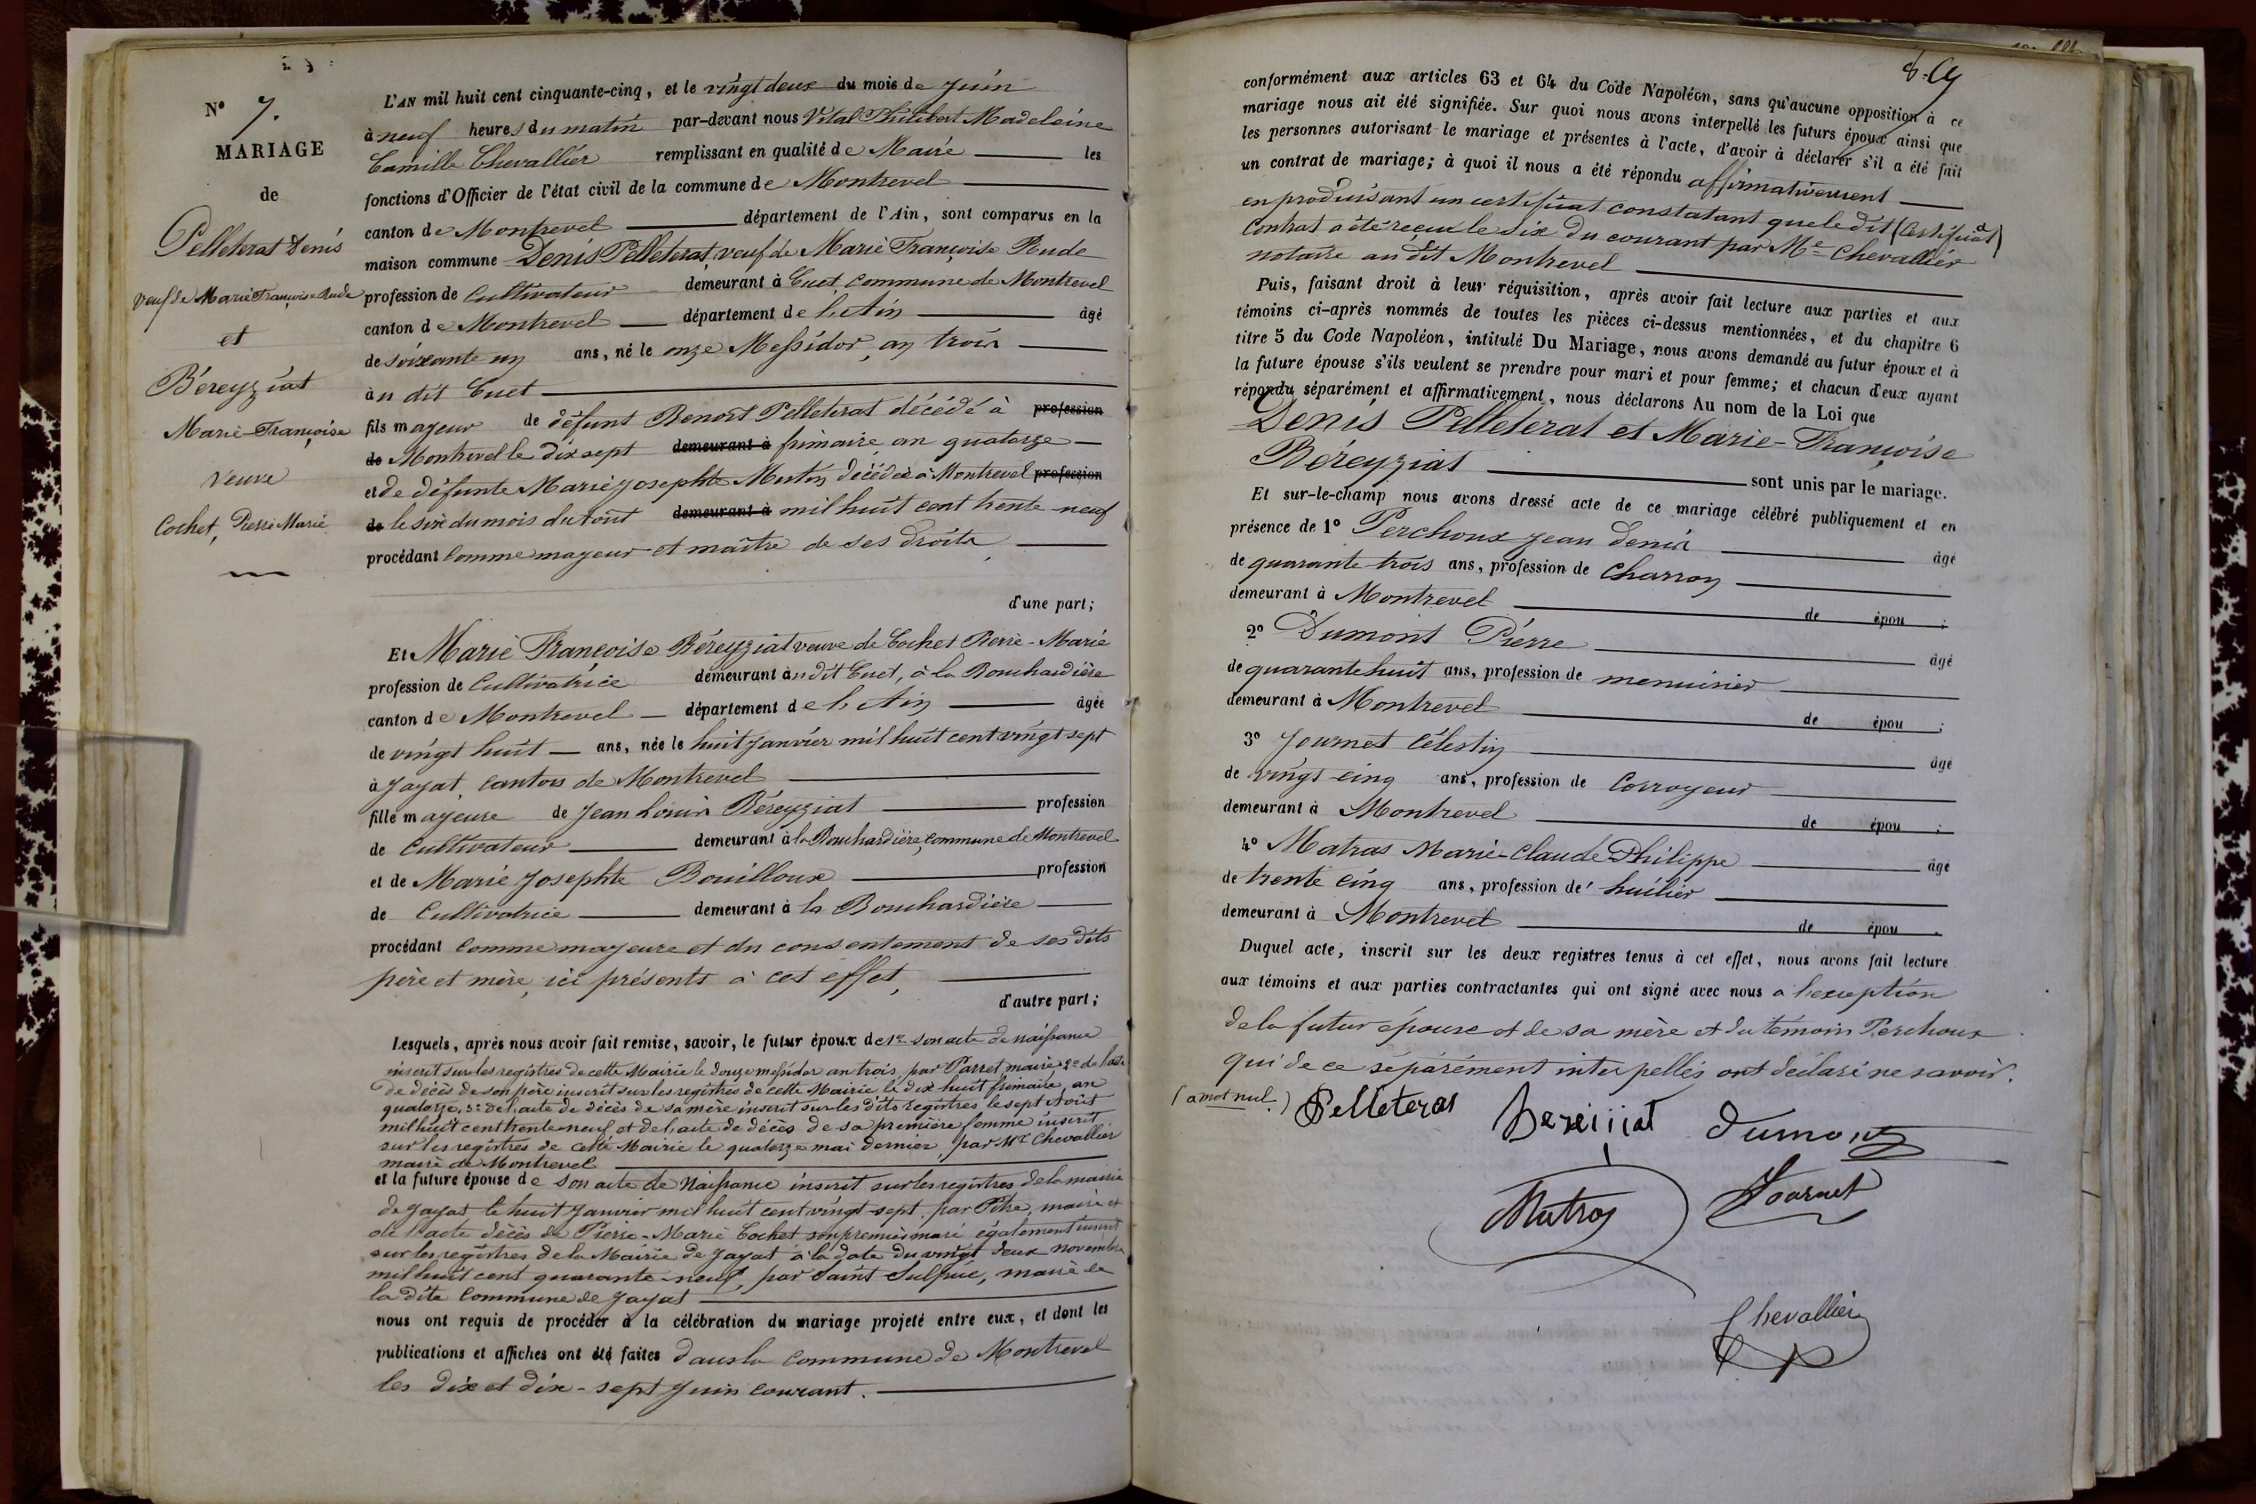 N° 7.
MARIAGE
de
Pelleterat Denis
veuf de Marie Françoise Rude
et
Béreyziat
Marie-Françoise
veuve
Cochet, Pierre Marie
L'AN mil huit cent cinquante-cinq, et le vingt deux du mois de Juin
à neuf heures du matin par-devant nous Vital Philibert Madeleine
Camille Chevallier remplissant en qualité de Maire les
fonctions d'Officier de l'état civil de la commune de Montrevel
canton de Montrevel département de l'Ain, sont comparus en la
maison commune Denis Pelleterat, veuf de Marie Françoise Rude
profession de Cultivateur demeurant à Cuet, Commune de Montrevel
canton de Montrevel département de l'Ain âgé
de soixante un ans, né le onze Messidor, an trois
à u dit Cuet
fils mayeur de défunt Benoit Pelleterat décédé à profession
de Montrevel le dix sept demeurant à frimaire, an quatorze
et de défunte Marie Josephte Mutin décédée à Montrevel profession
de le six du mois du Août demeurant à mil huit cent trente-neuf
procédant Comme mayeur et maître de ses droits,
d'une part;
Et Marie Françoise Béreyziat veuve de Cochet Pierre-Marie
profession de Cultivatrice demeurant àu dit Cuet, à la Bouchardière
canton de Montrevel département de l'Ain âgée
de vingt huit ans, née le huit Janvier mil huit cent vingt sept
à Jayat, canton de Montrevel
fille mayeure de Jean Louis Béreyziat profession
de Cultivateur demeurant à la Bouchardière, commune de Montrevel
et de Marie Josephte Bouilloux profession
de Cultivatrice demeurant à la Bouchardière
procédant Comme mayeure et du consentement de ses dits
père et mère, ici présents à cet effet,
d'autre part;
Lesquels, après nous avoir fait remise, savoir, le futur époux de 1° son acte de naissance
inscrit sur les registres de cette Mairie le douze messidor an trois, par Parret maire, 2° de l'acte
de décès de son père inscrit sur les registres de cette Mairie le dix huit frimaire, an
quatorze, 3° de l'acte de décès de sa mère inscrit sur les dits registres le sept Août
mil huit cent trente neuf et de l'acte de décès de sa première femme inscrit
sur les registres de cette Mairie le quatorze mai dernier, par Mr Chevallier
maire de Montrevel
et la future épouse de son acte de Naissance inscrit sur les registres de la mairie
de Jayat le huit Janvier mil huit cent vingt-sept, par Pitre, maire et
de l'acte décès de Pierre-Marie Cochet son premier mari également inscrit
sur les registres de la Mairie de Jayat à la date du vingt deux novembre
mil huit cent quarante-neuf, par Saint Sulpice, maire de
la dite Commune de Jayat
nous ont requis de procéder à la célébration du mariage projeté entre eux, et dont les
publications et affiches ont été faites dans la commune de Montrevel
les dix et dix-sept Juin courant.
conformément aux articles 63 et 64 du Code Napoléon, sans qu'aucune opposition à ce
mariage nous ait été signifiée. Sur quoi nous avons interpellé les futurs époux ainsi que
les personnes autorisant le mariage et présentes à l'acte, d'avoir à déclarer s'il a été fait
un contrat de mariage; à quoi il nous a été répondu affirmativement
en produisant un certificat constatant que le dit (Certificat) a
Contrat a été reçu le six du courant par Me Chevallier
notaire au dit Montrevel
Puis, faisant droit à leur réquisition, après avoir fait lecture aux parties et aux
témoins ci-après nommés de toutes les pièces ci-dessus mentionnées, et du chapitre 6
titre 5 du Code Napoléon, intitulé Du Mariage, nous avons demandé au futur époux et à
la future épouse s'ils veulent se prendre pour mari et pour femme; et chacun d'eux ayant
répondu séparément et affirmativement, nous déclarons Au nom de la Loi que
Denis Pelleterat et Marie-Françoise
Béreyziat sont unis par le mariage.
Et sur-le-champ nous avons dressé acte de ce mariage célébré publiquement et en
présence de 1° Perchoux Jean Denis âgé
de quarante trois ans, profession de Charron
demeurant à Montrevel de épou ;
2° Dumont Pierre âgé
de quarante huit ans, profession de menuisier
demeurant à Montrevel de épou ;
3° Journet Célestin âgé
de vingt-cinq ans, profession de Corroyeur
demeurant à Montrevel de épou ;
4° Matras Marie-Claude-Philippe âgé
de trente cinq ans, profession d' huilier
demeurant à Montrevel de épou .
Duquel acte, inscrit sur les deux registres tenus à cet effet, nous avons fait lecture
aux témoins et aux parties contractantes qui ont signé avec nous a l'exception
de la futur épouse et de sa mère et du témoin Perchoux
qui de ce séparément interpellés ont déclaré ne savoir.
(a mot nul.) Pelleterat Bereiiiat Dumont
Matras Journet
Chevallier